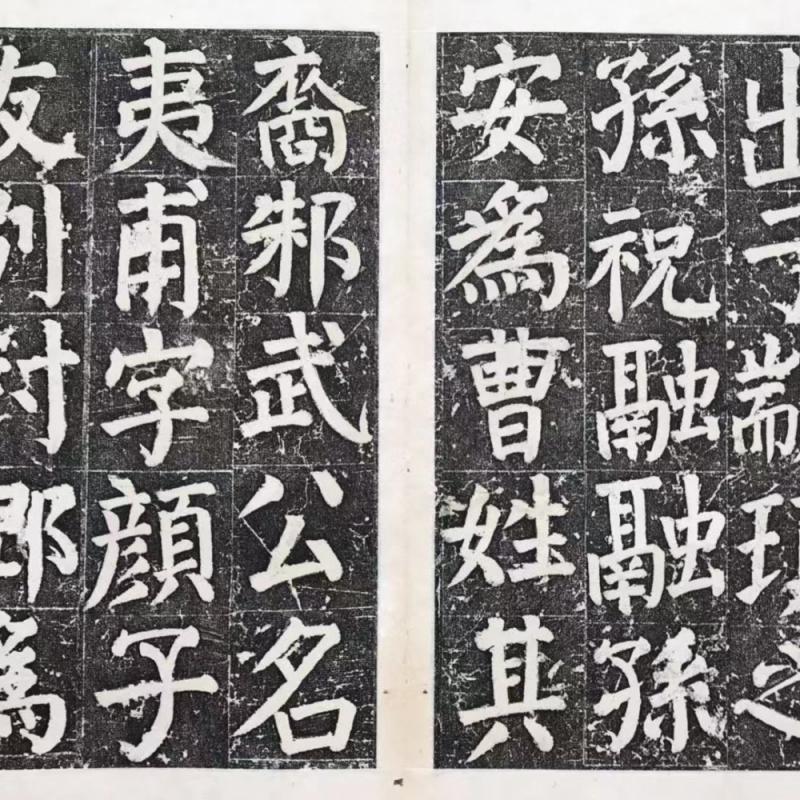 出于顓頊之
孫祝融融孫
安為曹姓其
裔邾武公名
夷甫字顏子
友別封郳為